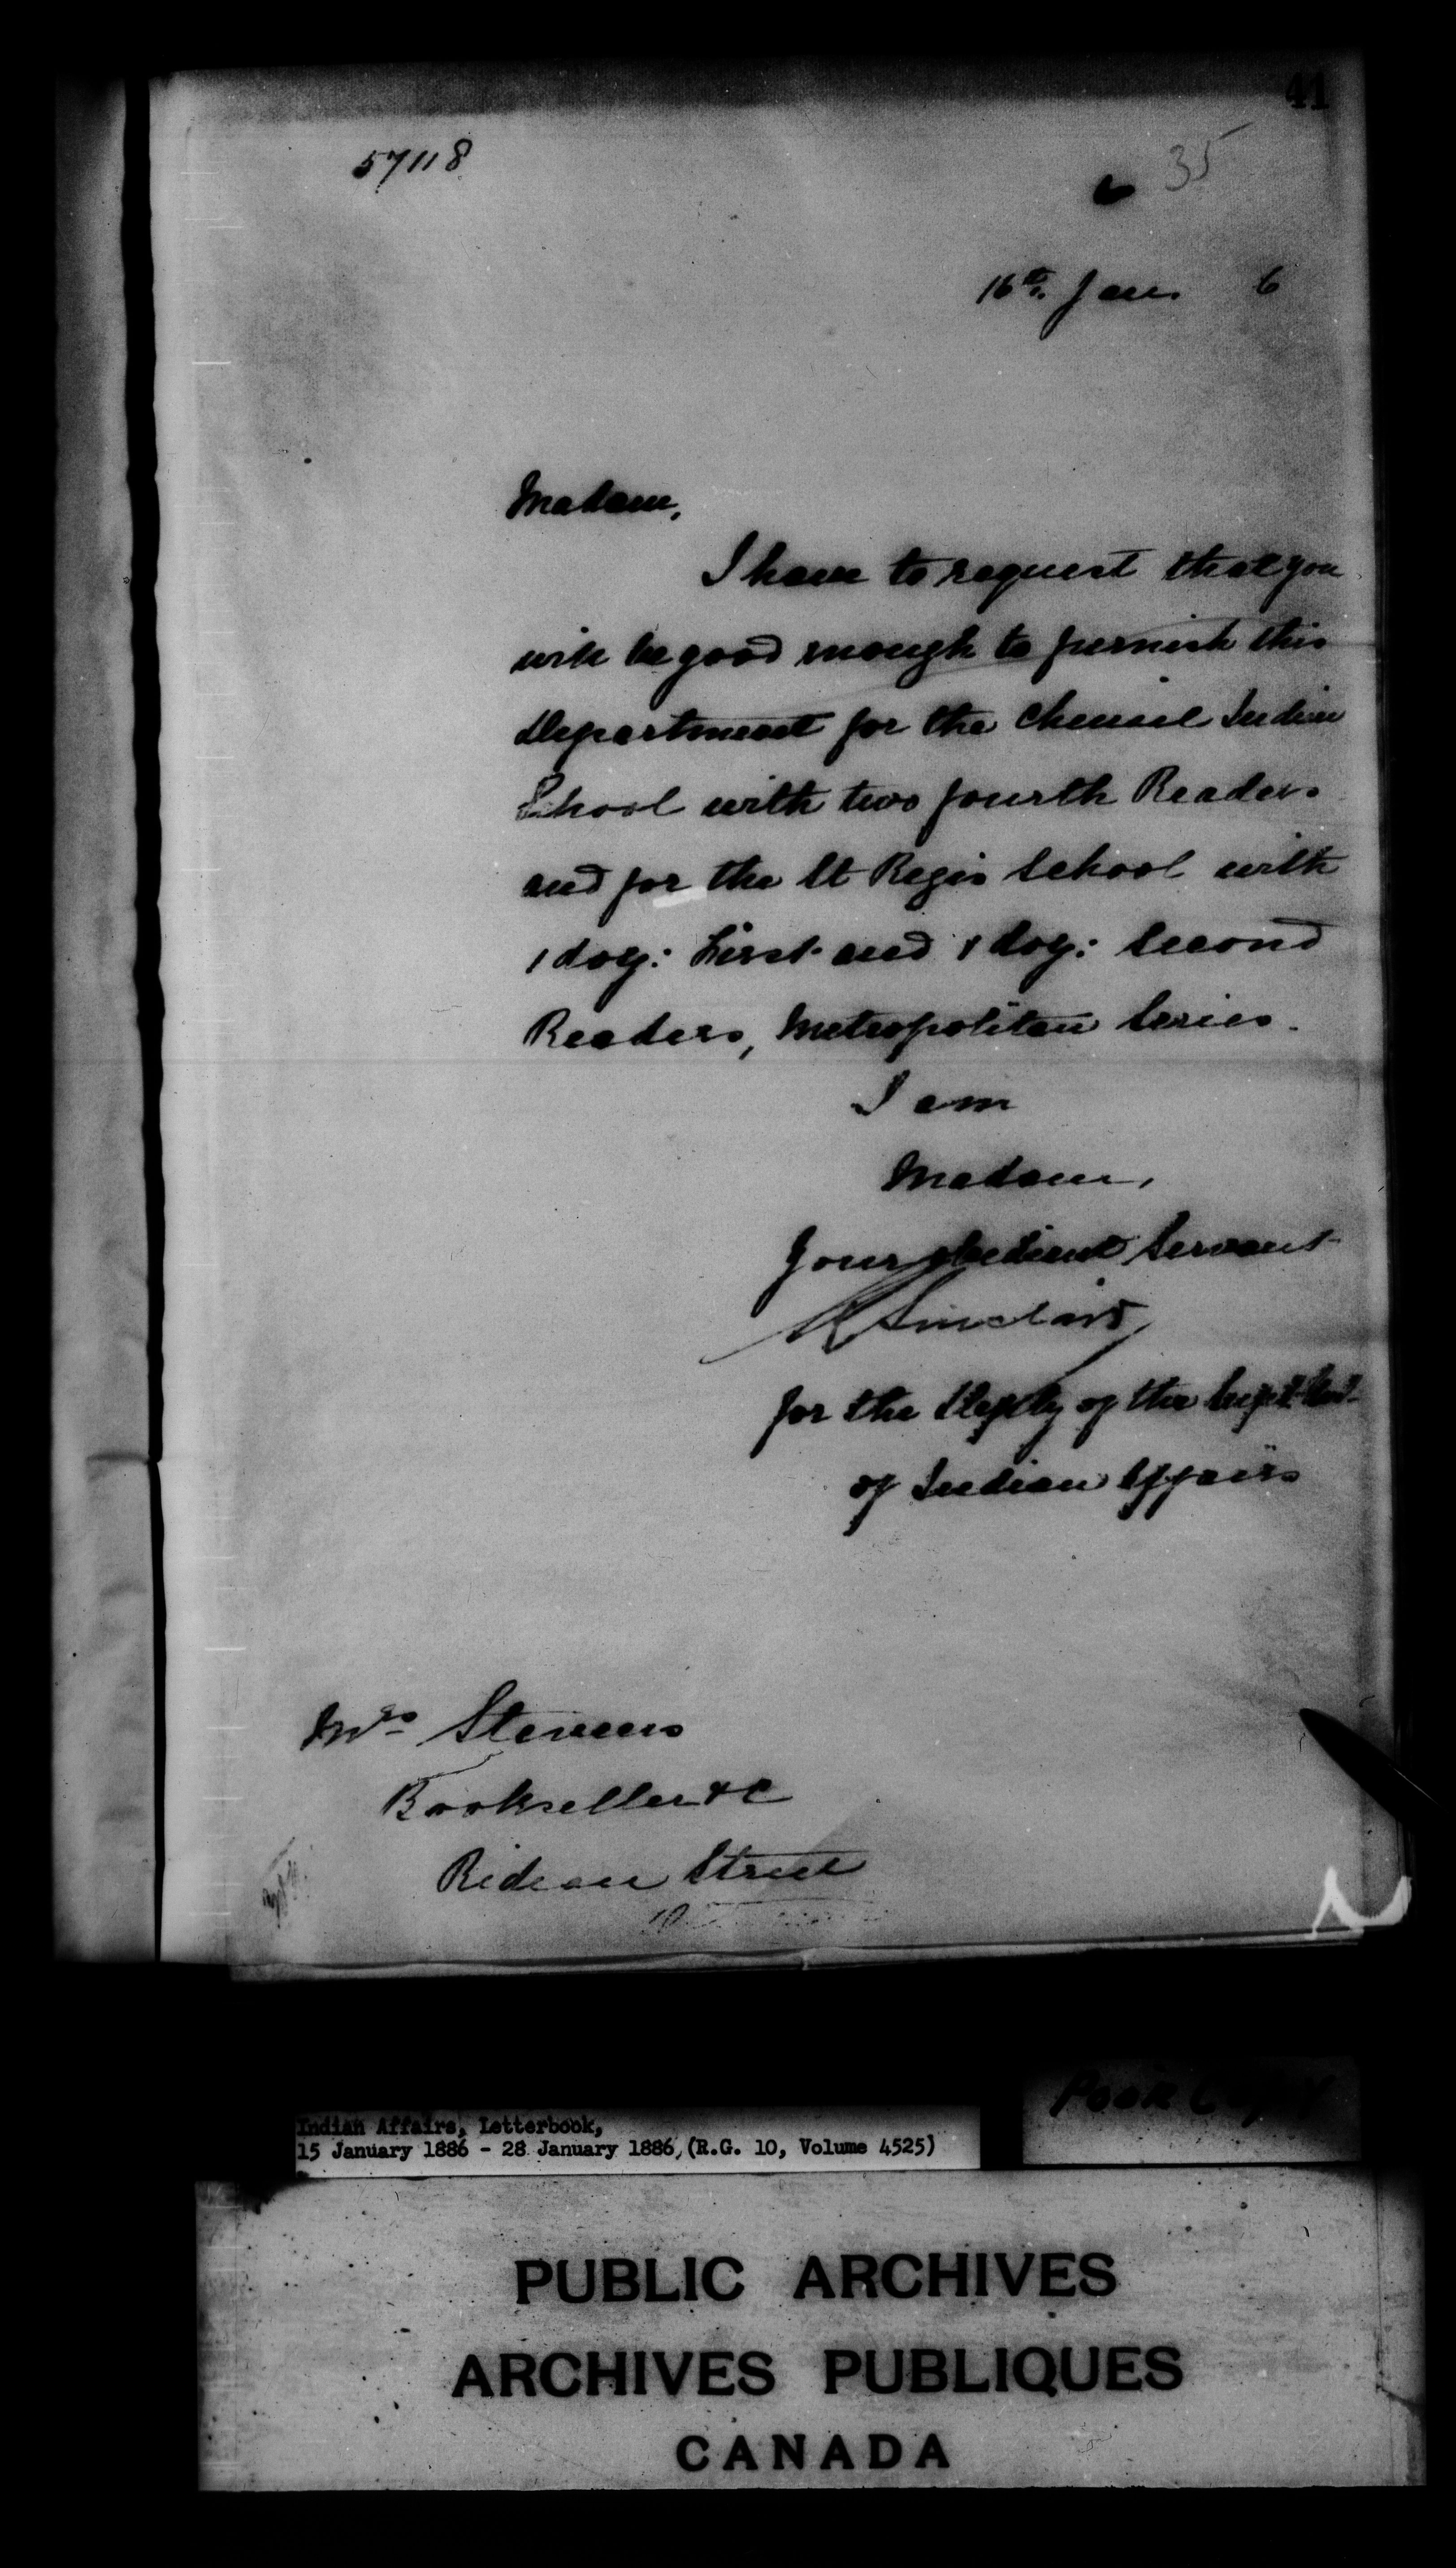 41
57118
35
16th. Jan. 6
Madam,
I have to request that you
will be good enough to furnish this
Department for the Chenail Indian
School with two fourth Readers
and for the St Regis School with
1 doz: First and 1 doz: Second
Readers, Metropolitan Series.
I am
Madam,
Your obedient Servant
Sinclair
for the Deputy of the Supt. Genl.
of Indian Affairs
Mrs Stevens
Bookseller &c
Rideau Street
Poor Copy
Indian Affairs, Letterbook,
15 January 1886 - 28 January 1886, (R.G. 10, Volume 4525)
PUBLIC ARCHIVES
ARCHIVES PUBLIQUES
CANADA